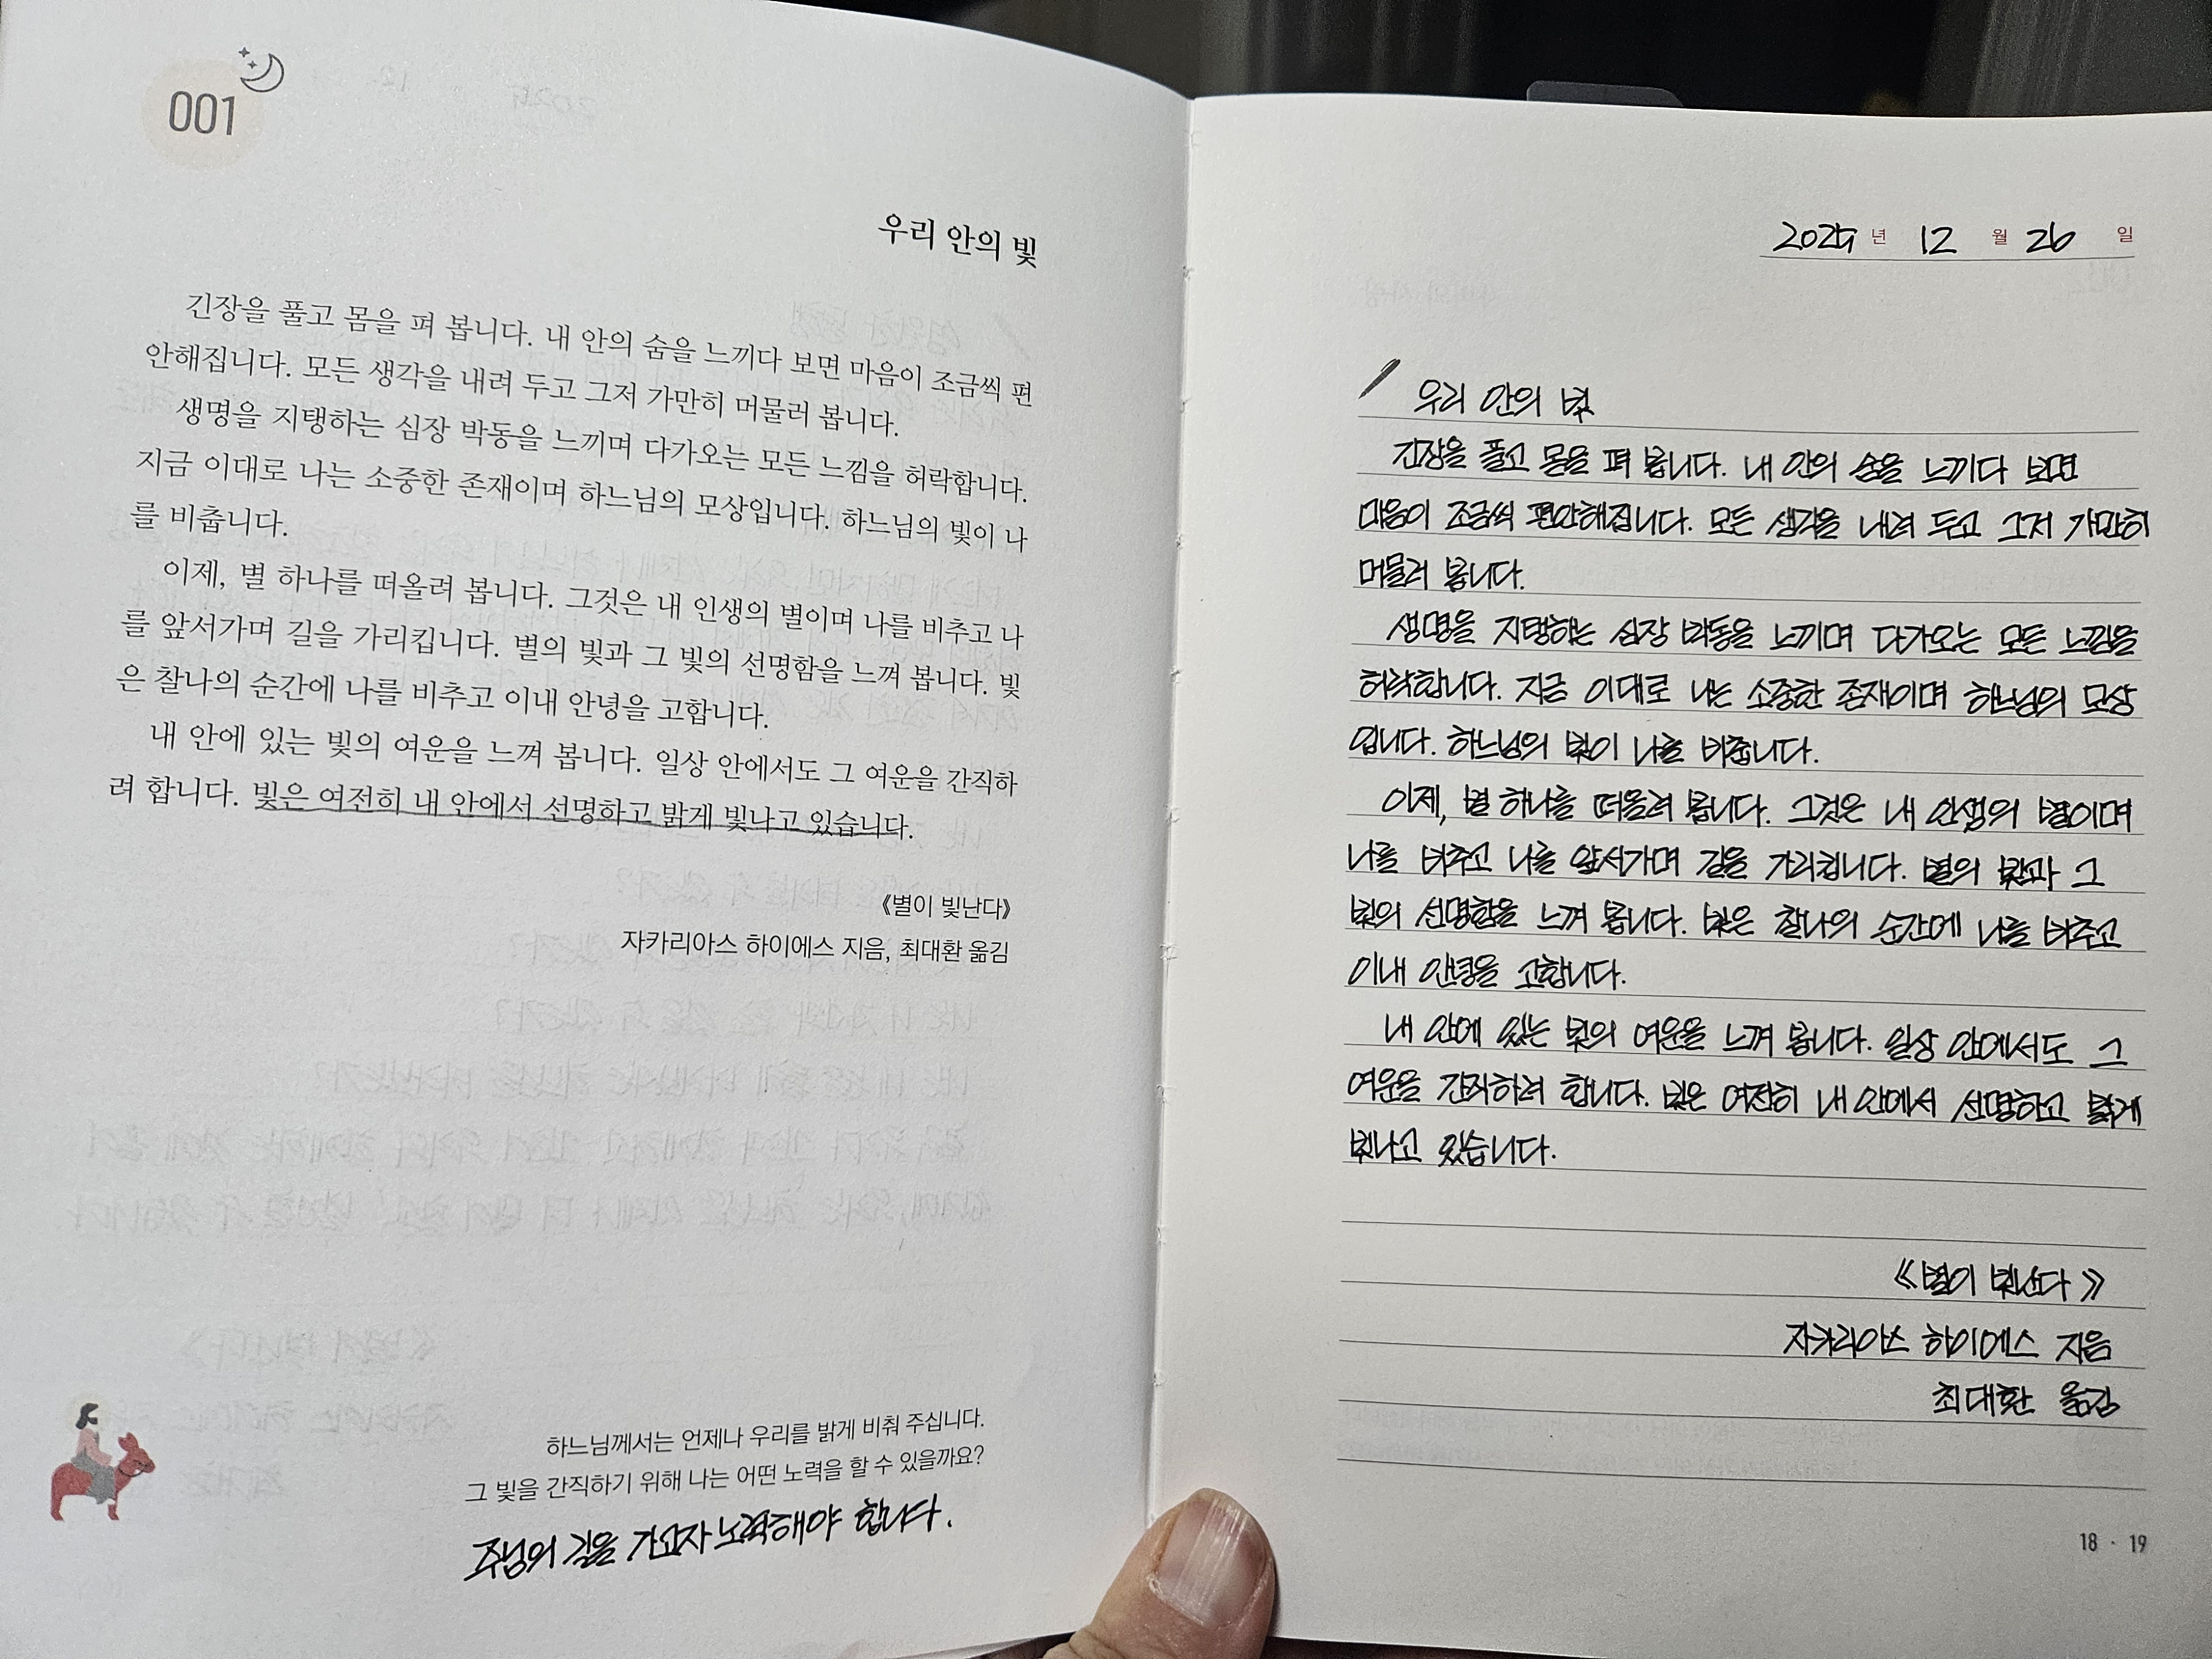 001
우리 안의 빛
긴장을 풀고 몸을 펴 봅니다. 내 안의 숨을 느끼다 보면 마음이 조금씩 편
안해집니다. 모든 생각을 내려 두고 그저 가만히 머물러 봅니다.
생명을 지탱하는 심장 박동을 느끼며 다가오는 모든 느낌을 허락합니다.
지금 이대로 나는 소중한 존재이며 하느님의 모상입니다. 하느님의 빛이 나
를 비춥니다.
이제, 별 하나를 떠올려 봅니다. 그것은 내 인생의 별이며 나를 비추고 나
를 앞서가며 길을 가리킵니다. 별의 빛과 그 빛의 선명함을 느껴 봅니다. 빛
은 찰나의 순간에 나를 비추고 이내 안녕을 고합니다.
내 안에 있는 빛의 여운을 느껴 봅니다. 일상 안에서도 그 여운을 간직하
려 합니다. 빛은 여전히 내 안에서 선명하고 밝게 빛나고 있습니다.
《별이 빛난다》
자카리아스 하이에스 지음, 최대환 옮김
하느님께서는 언제나 우리를 밝게 비춰 주십니다.
그 빛을 간직하기 위해 나는 어떤 노력을 할 수 있을까요?
주님의 길을 가고자 노력해야 합니다.
년 12 월 26 일
우리 안의 빛
긴장을 풀고 몸을 펴 봅니다. 내 안의 숨을 느끼다 보면
마음이 조금씩 편안해집니다. 모든 생각을 내려 두고 그저 가만히
머물러 봅니다.
생명을 지탱하는 심장 박동을 느끼며 다가오는 모든 느낌을
허락합니다. 지금 이대로 나는 소중한 존재이며 하느님의 모상
입니다. 하느님의 빛이 나를 비춥니다.
이제, 별 하나를 떠올려 봅니다. 그것은 내 인생의 별이며
나를 비추고 나를 앞서가며 길을 가리킵니다. 별의 빛과 그
빛의 선명함을 느껴 봅니다. 빛은 찰나의 순간에 나를 비추고
이내 안녕을 고합니다.
내 안에 있는 빛의 여운을 느껴 봅니다. 일상 안에서도 그
여운을 간직하려 합니다. 빛은 여전히 내 안에서 선명하고 밝게
빛나고 있습니다.
《별이 빛난다》
자카리아스 하이에스 지음
최대환 옮김
18 · 19